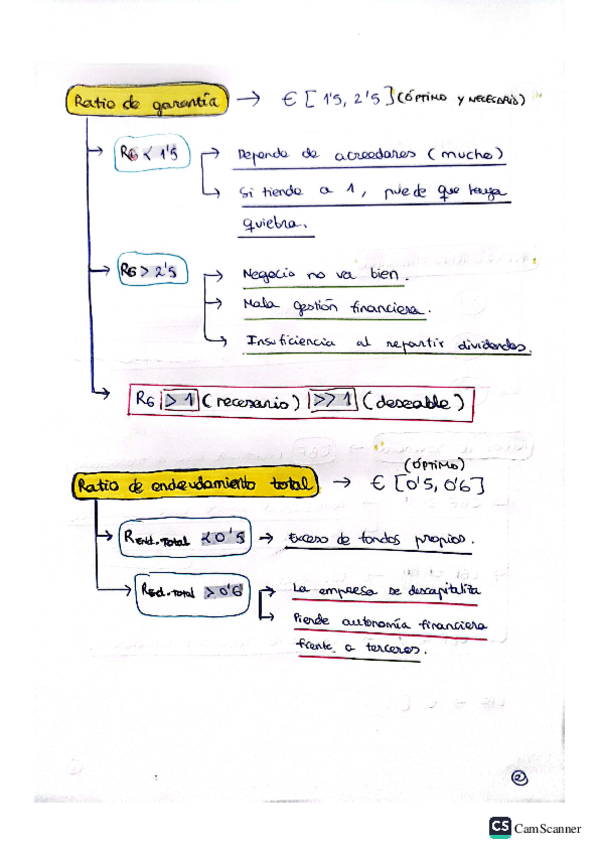 Ratio de garantía → € [1'5, 2'5] (ÓPTIMO Y NECESARIO)
RG < 1'5 → Depende de acreedores (mucho)
→ Si tiende a 1, puede que haya
quiebra.
RG > 2'5 → Negocio no va bien.
→ Mala gestión financiera.
→ Insuficiencia al repartir dividendos.
RG > 1 (necesario) >> 1 (deseable)
(ÓPTIMO)
Ratio de endeudamiento total → € [0'5, 0'6]
REnd. Total < 0'5 → Exceso de fondos propios.
REd. total > 0'6 → La empresa se descapitaliza
→ Pierde autonomía financiera
frente a terceros.
2
CS CamScanner